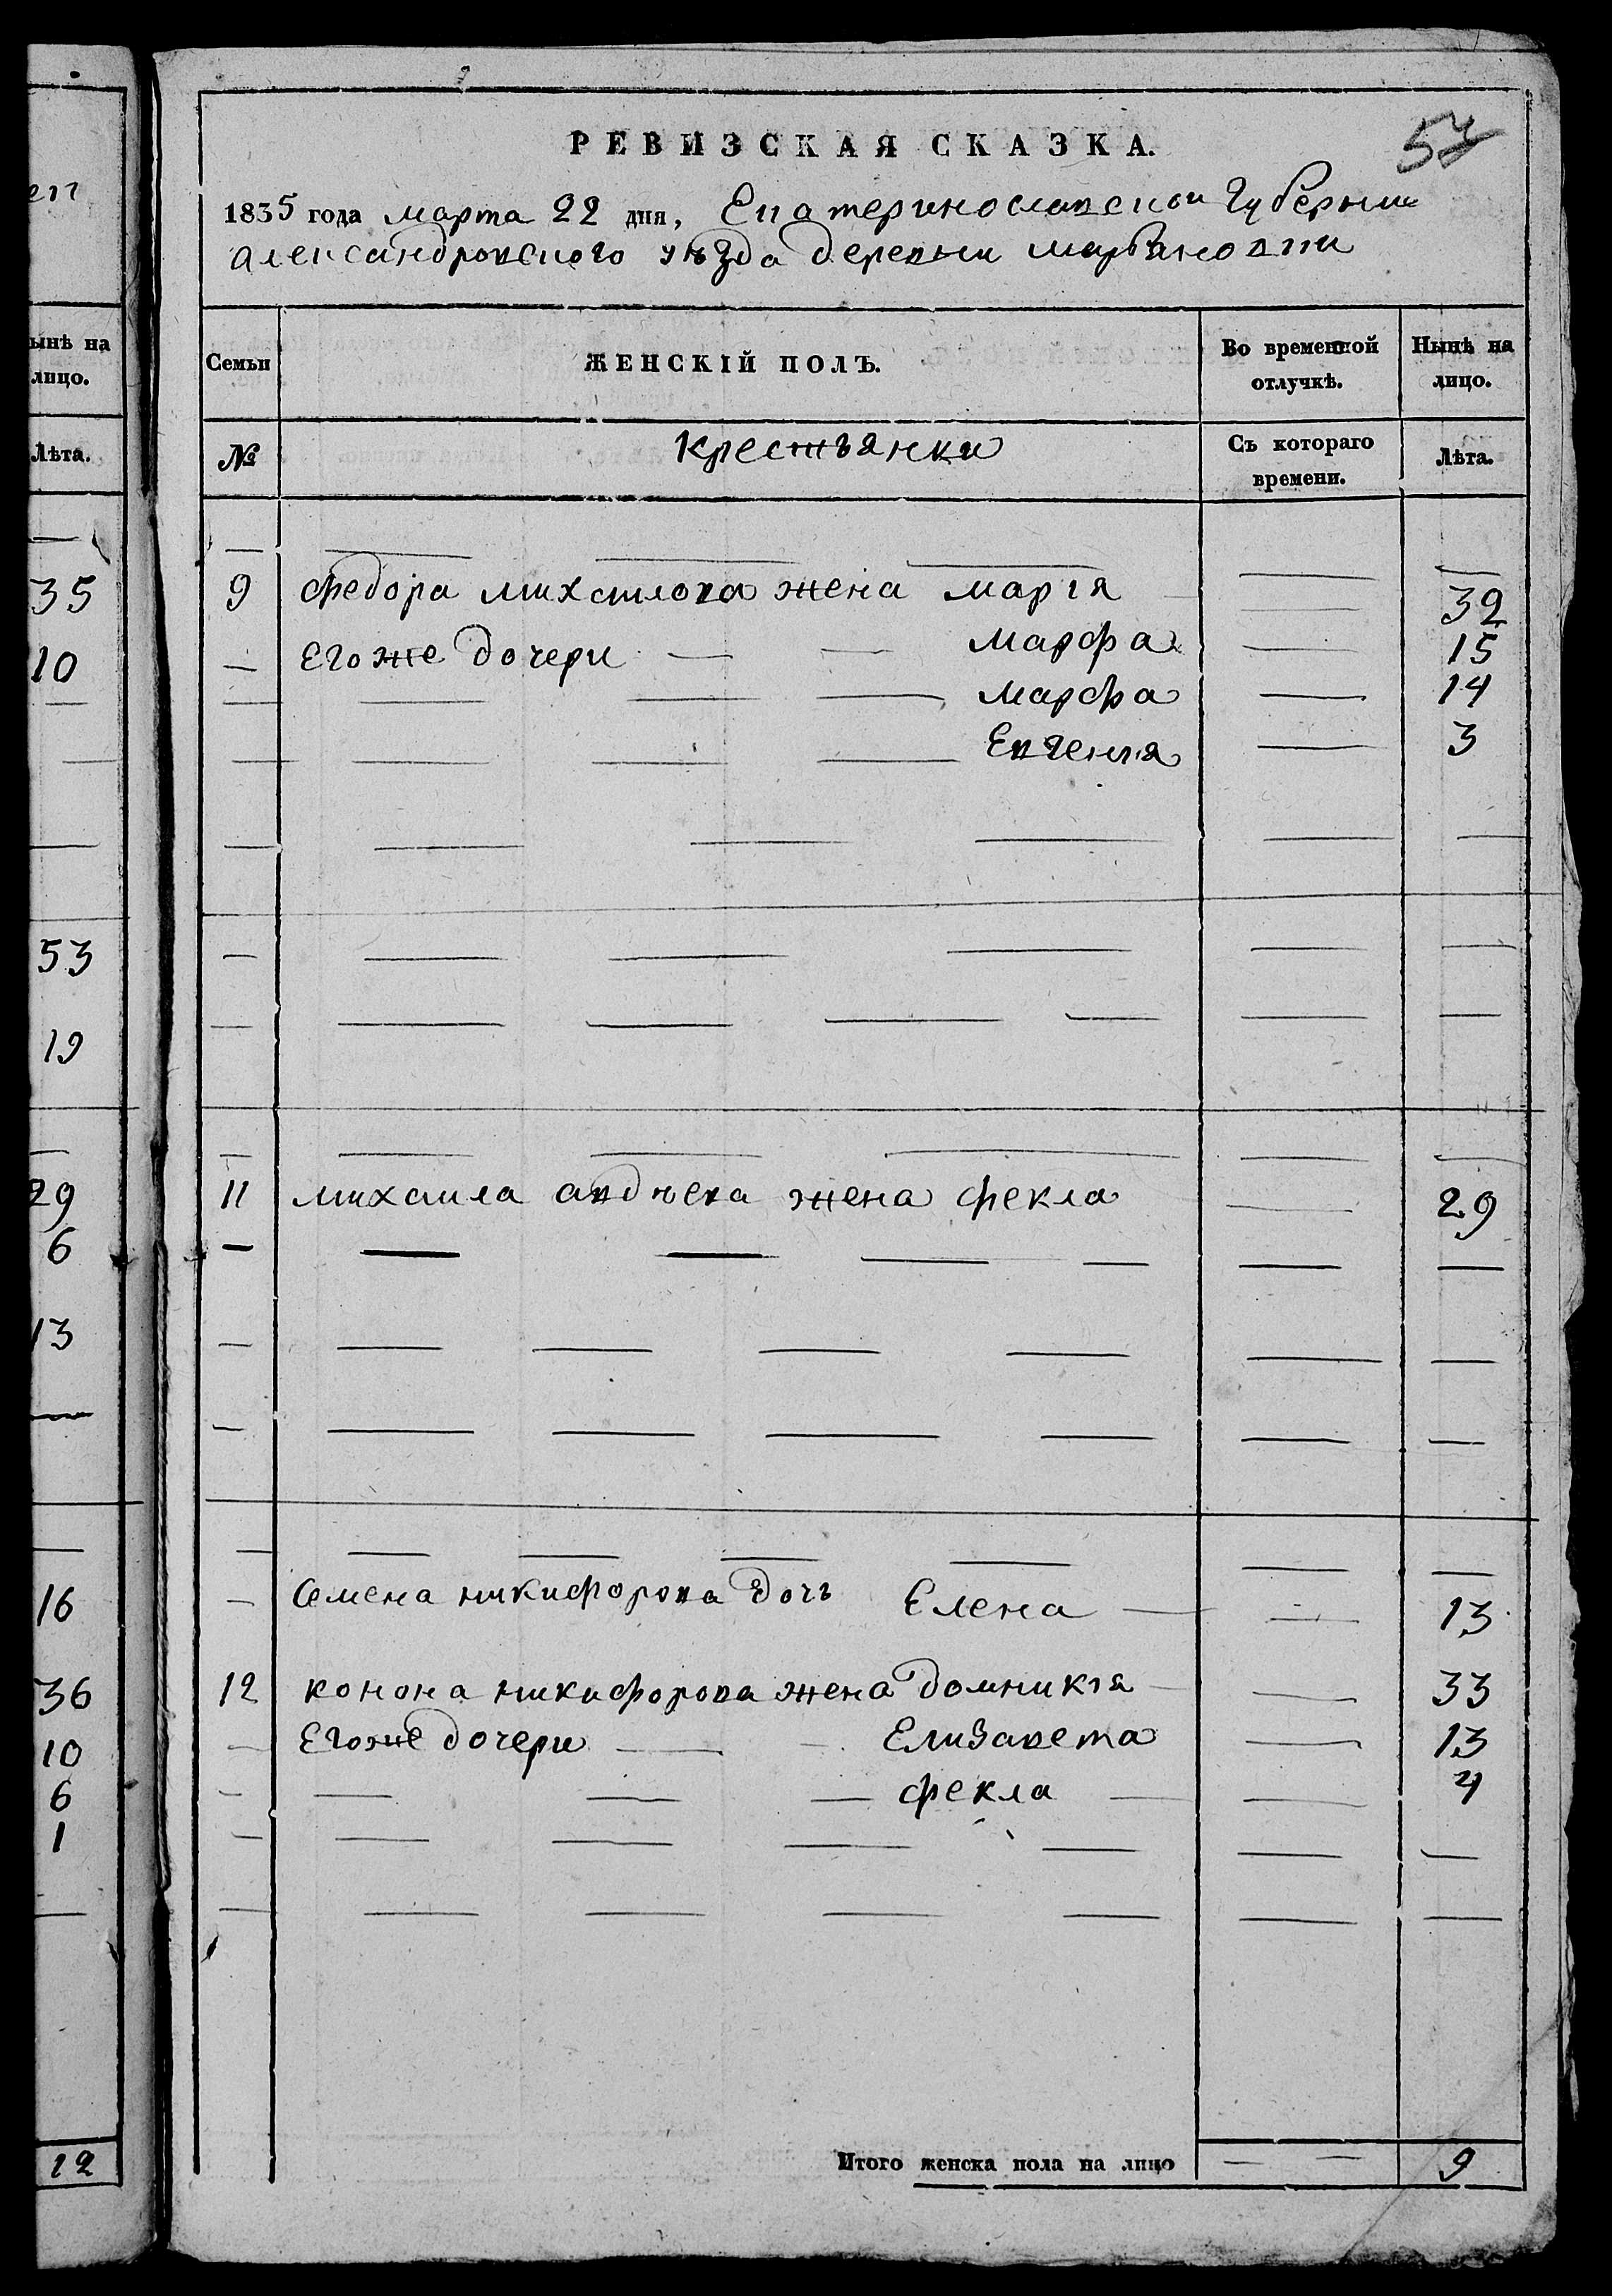 еп
ынѣ на
лицо.
Лѣта.
35
10
53
19
29
6
13
16
36
10
6
1
12
57
РЕВИЗСКАЯ СКАЗКА.
1835 года марта 22 дня, Екатеринославской Губернии
александровского уѣзда деревни марьяновки
Семьи ЖЕНСКІЙ ПОЛЪ. Во временной отлучкѣ. Нынѣ на лицо.
№ Крестьянки Съ котораго времени. Лѣта.
9 Федора михаилова жена марія 32
Его же дочери марфа 15
марфа 14
Евгения 3
11 михаила авдѣева жена фекла 29
Семена никифорова дочь Елена 13
12 конона никифорова жена домникія 33
Его же дочери Елизавета 13
фекла 4
Итого женска пола на лицо 9